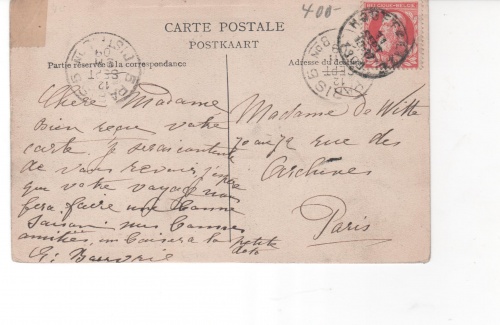 400-
CARTE POSTALE
POSTKAART
Partie réservée à la correspondance
Adresse du
PARIS
12
SEPT
PARIS
12
SEPT
Chère Madame
Bien reçu votre
carte. Je serai contente
de vous revoir, j'espère
que votre voyage vous
fera faire une bonne
saison mes bonnes
amitiés, un baiser a la petite
G.
Madame de Witte
70 rue des
Archives
Paris